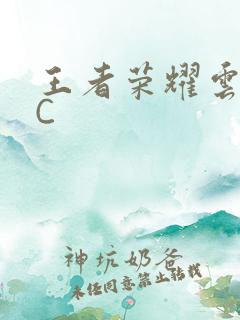 王者荣耀雲
C
神坑奶爸
未经同意禁止转载